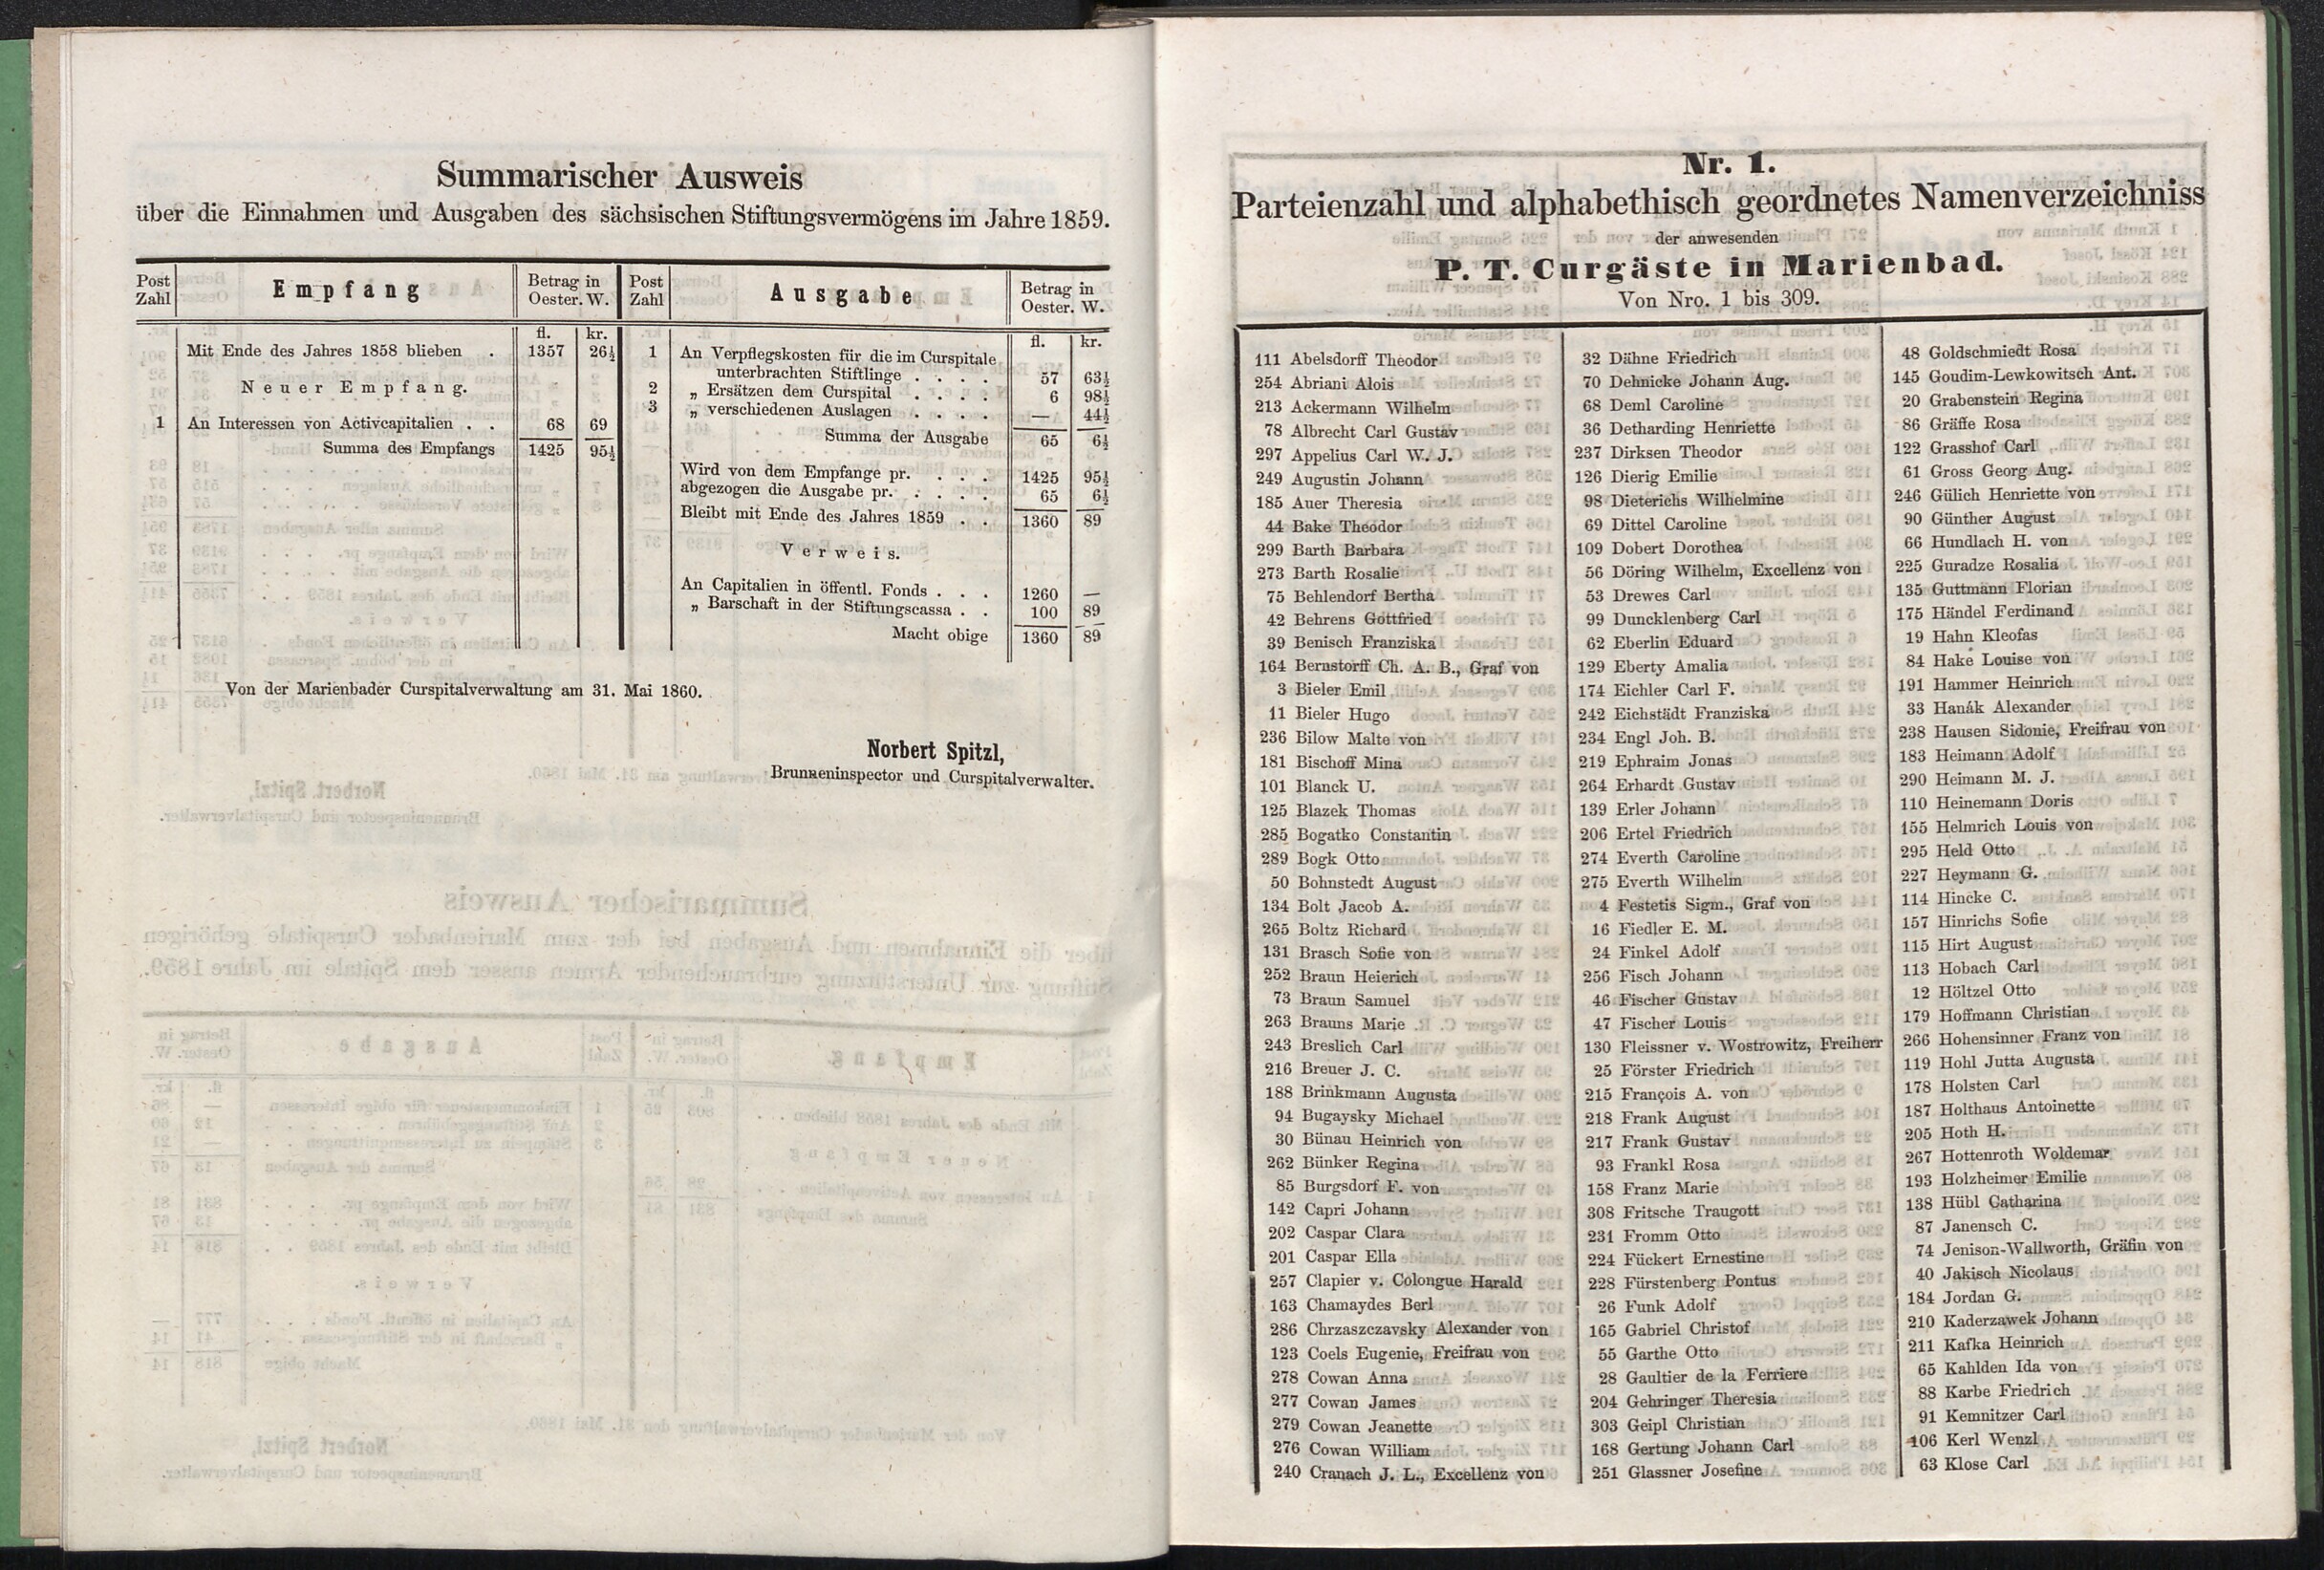 Summarischer Ausweis
über die Einnahmen und Ausgaben des sächsischen Stiftungsvermögens im Jahre 1859.
Post Zahl
Empfang
Betrag in Oester. W.
fl. kr.
Mit Ende des Jahres 1858 blieben . 1357 26½
Neuer Empfang.
1 An Interessen von Activcapitalien . . 68 69
Summa des Empfangs 1425 95½
Post Zahl
Ausgabe
Betrag in Oester. W.
fl. kr.
1 An Verpflegskosten für die im Curspitale
unterbrachten Stiftlinge . . . . 57 63½
2 „ Ersätzen dem Curspital . . . . 6 98½
3 „ verschiedenen Auslagen . . . . — 44½
Summa der Ausgabe 65 6½
Wird von dem Empfange pr. . . . . 1425 95½
abgezogen die Ausgabe pr. . . . . 65 6½
Bleibt mit Ende des Jahres 1859 . . 1360 89
Verweis.
An Capitalien in öffentl. Fonds . . . 1260 —
„ Barschaft in der Stiftungscassa . . 100 89
Macht obige 1360 89
Von der Marienbader Curspitalverwaltung am 31. Mai 1860.
Norbert Spitzl,
Brunneninspector und Curspitalverwalter.
Nr. 1.
Parteienzahl und alphabethisch geordnetes Namenverzeichniss
der anwesenden
P. T. Curgäste in Marienbad.
Von Nro. 1 bis 309.
111 Abelsdorff Theodor
254 Abriani Alois
213 Ackermann Wilhelm
78 Albrecht Carl Gustav
297 Appelius Carl W. J.
249 Augustin Johann
185 Auer Theresia
44 Bake Theodor
299 Barth Barbara
273 Barth Rosalie
75 Behlendorf Bertha
42 Behrens Gottfried
39 Benisch Franziska
164 Bernstorff Ch. A. B., Graf von
3 Bieler Emil
11 Bieler Hugo
236 Bilow Malte von
181 Bischoff Mina
101 Blanck U.
125 Blazek Thomas
285 Bogatko Constantin
289 Bogk Otto
50 Bohnstedt August
134 Bolt Jacob A.
265 Boltz Richard
131 Brasch Sofie von
252 Braun Heierich
73 Braun Samuel
263 Brauns Marie
243 Breslich Carl
216 Breuer J. C.
188 Brinkmann Augusta
94 Bugaysky Michael
30 Bünau Heinrich von
262 Bünker Regina
85 Burgsdorf F. von
142 Capri Johann
202 Caspar Clara
201 Caspar Ella
257 Clapier v. Colongue Harald
163 Chamaydes Berl
286 Chrzaszczavsky Alexander von
123 Coels Eugenie, Freifrau von
278 Cowan Anna
277 Cowan James
279 Cowan Jeanette
276 Cowan William
240 Cranach J. L., Excellenz von
32 Dähne Friedrich
70 Dehnicke Johann Aug.
68 Deml Caroline
36 Detharding Henriette
237 Dirksen Theodor
126 Dierig Emilie
98 Dieterichs Wilhelmine
69 Dittel Caroline
109 Dobert Dorothea
56 Döring Wilhelm, Excellenz von
53 Drewes Carl
99 Duncklenberg Carl
62 Eberlin Eduard
129 Eberty Amalia
174 Eichler Carl F.
242 Eichstädt Franziska
234 Engl Joh. B.
219 Ephraim Jonas
264 Erhardt Gustav
139 Erler Johann
206 Ertel Friedrich
274 Everth Caroline
275 Everth Wilhelm
4 Festetis Sigm., Graf von
16 Fiedler E. M.
24 Finkel Adolf
256 Fisch Johann
46 Fischer Gustav
47 Fischer Louis
130 Fleissner v. Wostrowitz, Freiherr
25 Förster Friedrich
215 François A. von
218 Frank August
217 Frank Gustav
93 Frankl Rosa
158 Franz Marie
308 Fritsche Traugott
231 Fromm Otto
224 Fückert Ernestine
228 Fürstenberg Pontus
26 Funk Adolf
165 Gabriel Christof
55 Garthe Otto
28 Gaultier de la Ferriere
204 Gehringer Theresia
303 Geipl Christian
168 Gertung Johann Carl
251 Glassner Josefine
48 Goldschmiedt Rosa
145 Goudim-Lewkowitsch Ant.
20 Grabenstein Regina
86 Gräffe Rosa
122 Grasshof Carl
61 Gross Georg Aug.
246 Gülich Henriette von
90 Günther August
66 Hundlach H. von
225 Guradze Rosalia
135 Guttmann Florian
175 Händel Ferdinand
19 Hahn Kleofas
84 Hake Louise von
191 Hammer Heinrich
33 Hanák Alexander
238 Hausen Sidonie, Freifrau von
183 Heimann Adolf
290 Heimann M. J.
110 Heinemann Doris
155 Helmrich Louis von
295 Held Otto
227 Heymann G.
114 Hincke C.
157 Hinrichs Sofie
115 Hirt August
113 Hobach Carl
12 Höltzel Otto
179 Hoffmann Christian
266 Hohensinner Franz von
119 Hohl Jutta Augusta
178 Holsten Carl
187 Holthaus Antoinette
205 Hoth H.
267 Hottenroth Woldemar
193 Holzheimer Emilie
138 Hübl Catharina
87 Janensch C.
74 Jenison-Wallworth, Gräfin von
40 Jakisch Nicolaus
184 Jordan G.
210 Kaderzawek Johann
211 Kafka Heinrich
65 Kahlden Ida von
88 Karbe Friedrich
91 Kemnitzer Carl
106 Kerl Wenzl
63 Klose Carl